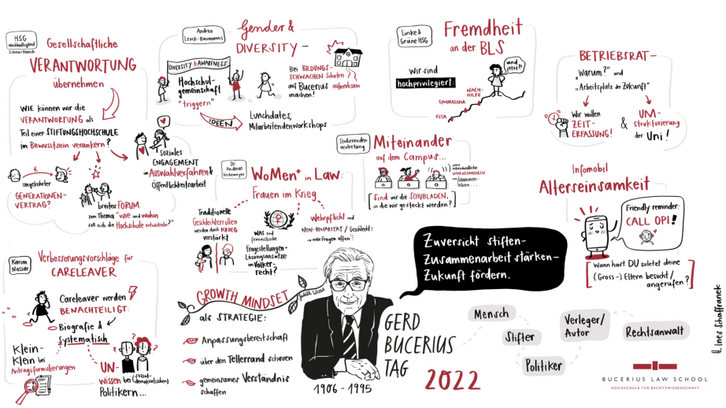 HSG
Gesellschaftliche
VERANTWORTUNG
übernehmen
WIE können wir die
VERANTWORTUNG als
Teil einer STIFTUNGSHOCHSCHULE
im Bewusstsein verankern?
umgekehrter
GENERATIONEN-
VERTRAG?
breites FORUM
zum Thema "WIE und wohin
soll sich die Hochschule entwickeln?"
soziales
ENGAGEMENT
Auswahlverfahren &
Öffentlichkeitsarbeit
Andrea
Gender &
DIVERSITY-
DIVERSITY & AWARENESS
Hochschul-
gemeinschaft
"triggern"
Bei BILDUNGS-
SCHWACHEN Schulen
auf Bucerius aufmerksam
machen!
IDEEN
Lunchdates,
Mitarbeitendenworkshops
Linke &
Grüne HSG
Fremdheit
an der BLS
Wir sind
hochprivilegiert
und jetzt?
NACH-
HILFE
GYMNASIUM
KITA
BETRIEBSRAT-
"Warum?" und
"Arbeitsplatz der Zukunft"
Wir wollen
ZEIT-
ERFASSUNG!
&
UM-
STRUKTURIERUNG
der Uni!
Studierenden-
vertretung
Miteinander
auf dem Campus...
Sind wir die SCHUBLADEN,
in die wir gesteckt werden?
Dr.
WoMen* in Law:
Frauen im Krieg
Traditionelle
Geschlechterrollen
werden durch KRIEG
verstärkt
WAS sind
feministische
Fragestellungen +
Lösungsansätze
im Völker-
recht?
Wehrpflicht und
NON-BINARITÄT / Geschlecht:
→ viele Fragen offen
Infomobil
Alterseinsamkeit
Friendly reminder:
CALL OPI!
Wann hast DU zuletzt deine
(Gross-) Eltern besucht/
angerufen?
Karim
Nassar
Verbesserungsvorschläge für
CARELEAVER
Careleaver werden
BENACHTEILIGT:
Biografie &
systematisch
Klein-
Klein bei
Antragsformulierungen
UN-
wissen bei
(sozial-
demokratischen)
Politikern...
GROWTH MINDSET
als STRATEGIE:
Anpassungsbereitschaft
über den Tellerrand schauen
gemeinsames Verständnis
schaffen
Zuversicht stiften-
Zusammenarbeit stärken-
Zukunft fördern.
GERD
BUCERIUS
TAG
2022
1906 - 1995
Mensch
Stifter
Politiker
Verleger/
Autor
Rechtsanwalt
BUCERIUS LAW SCHOOL
HOCHSCHULE FÜR RECHTSWISSENSCHAFT